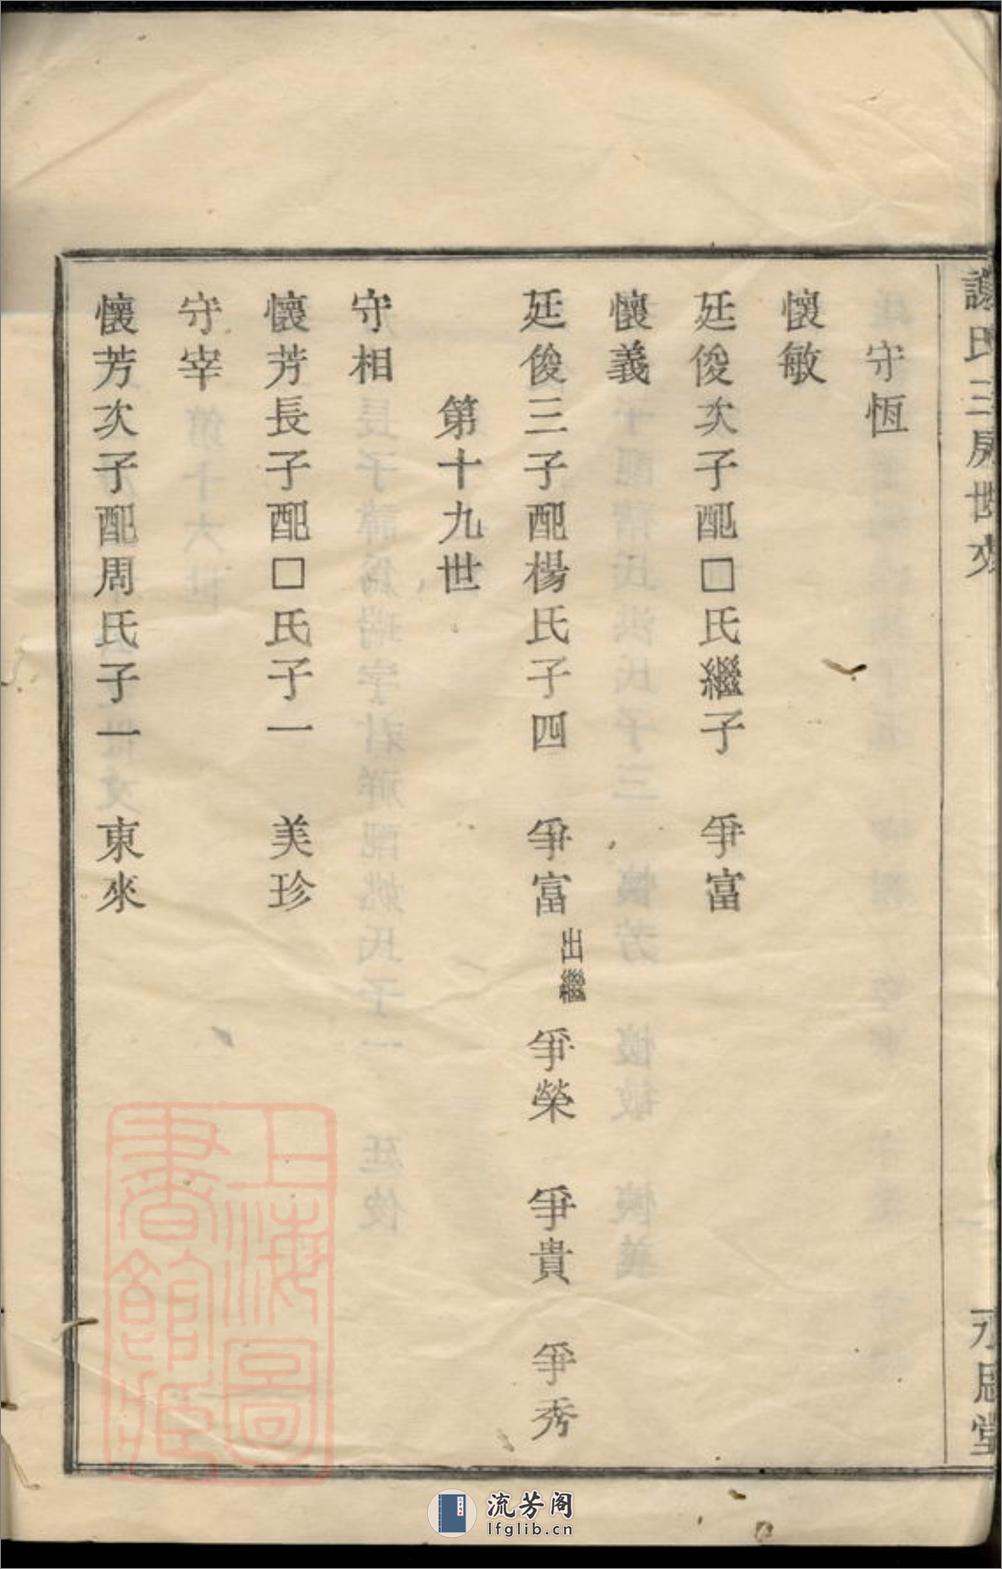 氏三房世文
守恆
懷敏
廷俊次子配□氏繼子　爭富
懷義
廷俊三子配楊氏子四　爭富出繼　爭榮　爭貴　爭秀
第十九世
守相
懷芳長子配□氏子一　美珍
守宰
懷芳次子配周氏子一　東來
上海圖書館藏
流芳阁
lfglib.cn